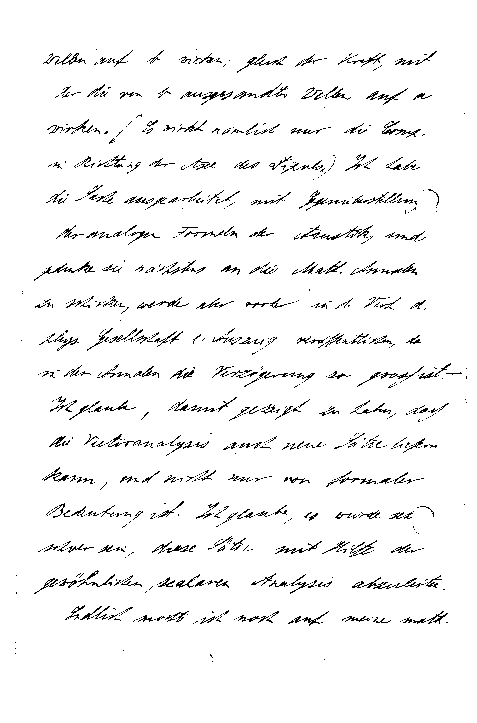 Wellen auf b wirken, gleich der Kraft, mit
der die von b ausgesandten Wellen auf a
wirken. (Es wirkt nämlich nur die Comp.
in Richtung der Axe des Dipoles) Ich habe
die Sache ausgearbeitet, mit Gegenüberstellung
der analogen Formeln der Akustik, und
gedenke sie nächstens an die Math. Annalen
zu schicken, werde aber vorher in d. Verh. d.
phys. Gesellschaft e. Auszug veröffentlichen, da
in den Annalen die Verzögerung so gross ist. —
Ich glaube, damit gezeigt zu haben, dass
die Vectoranalysis auch neue Sätze liefern
kann, und nicht nur von formaler
Bedeutung ist. Ich glaube, es würde sehr
schwer sein, diese Sätze mit Hilfe der
gewöhnlichen, scalaren Analysis abzuleiten.
Endlich möchte ich noch auf meine math.